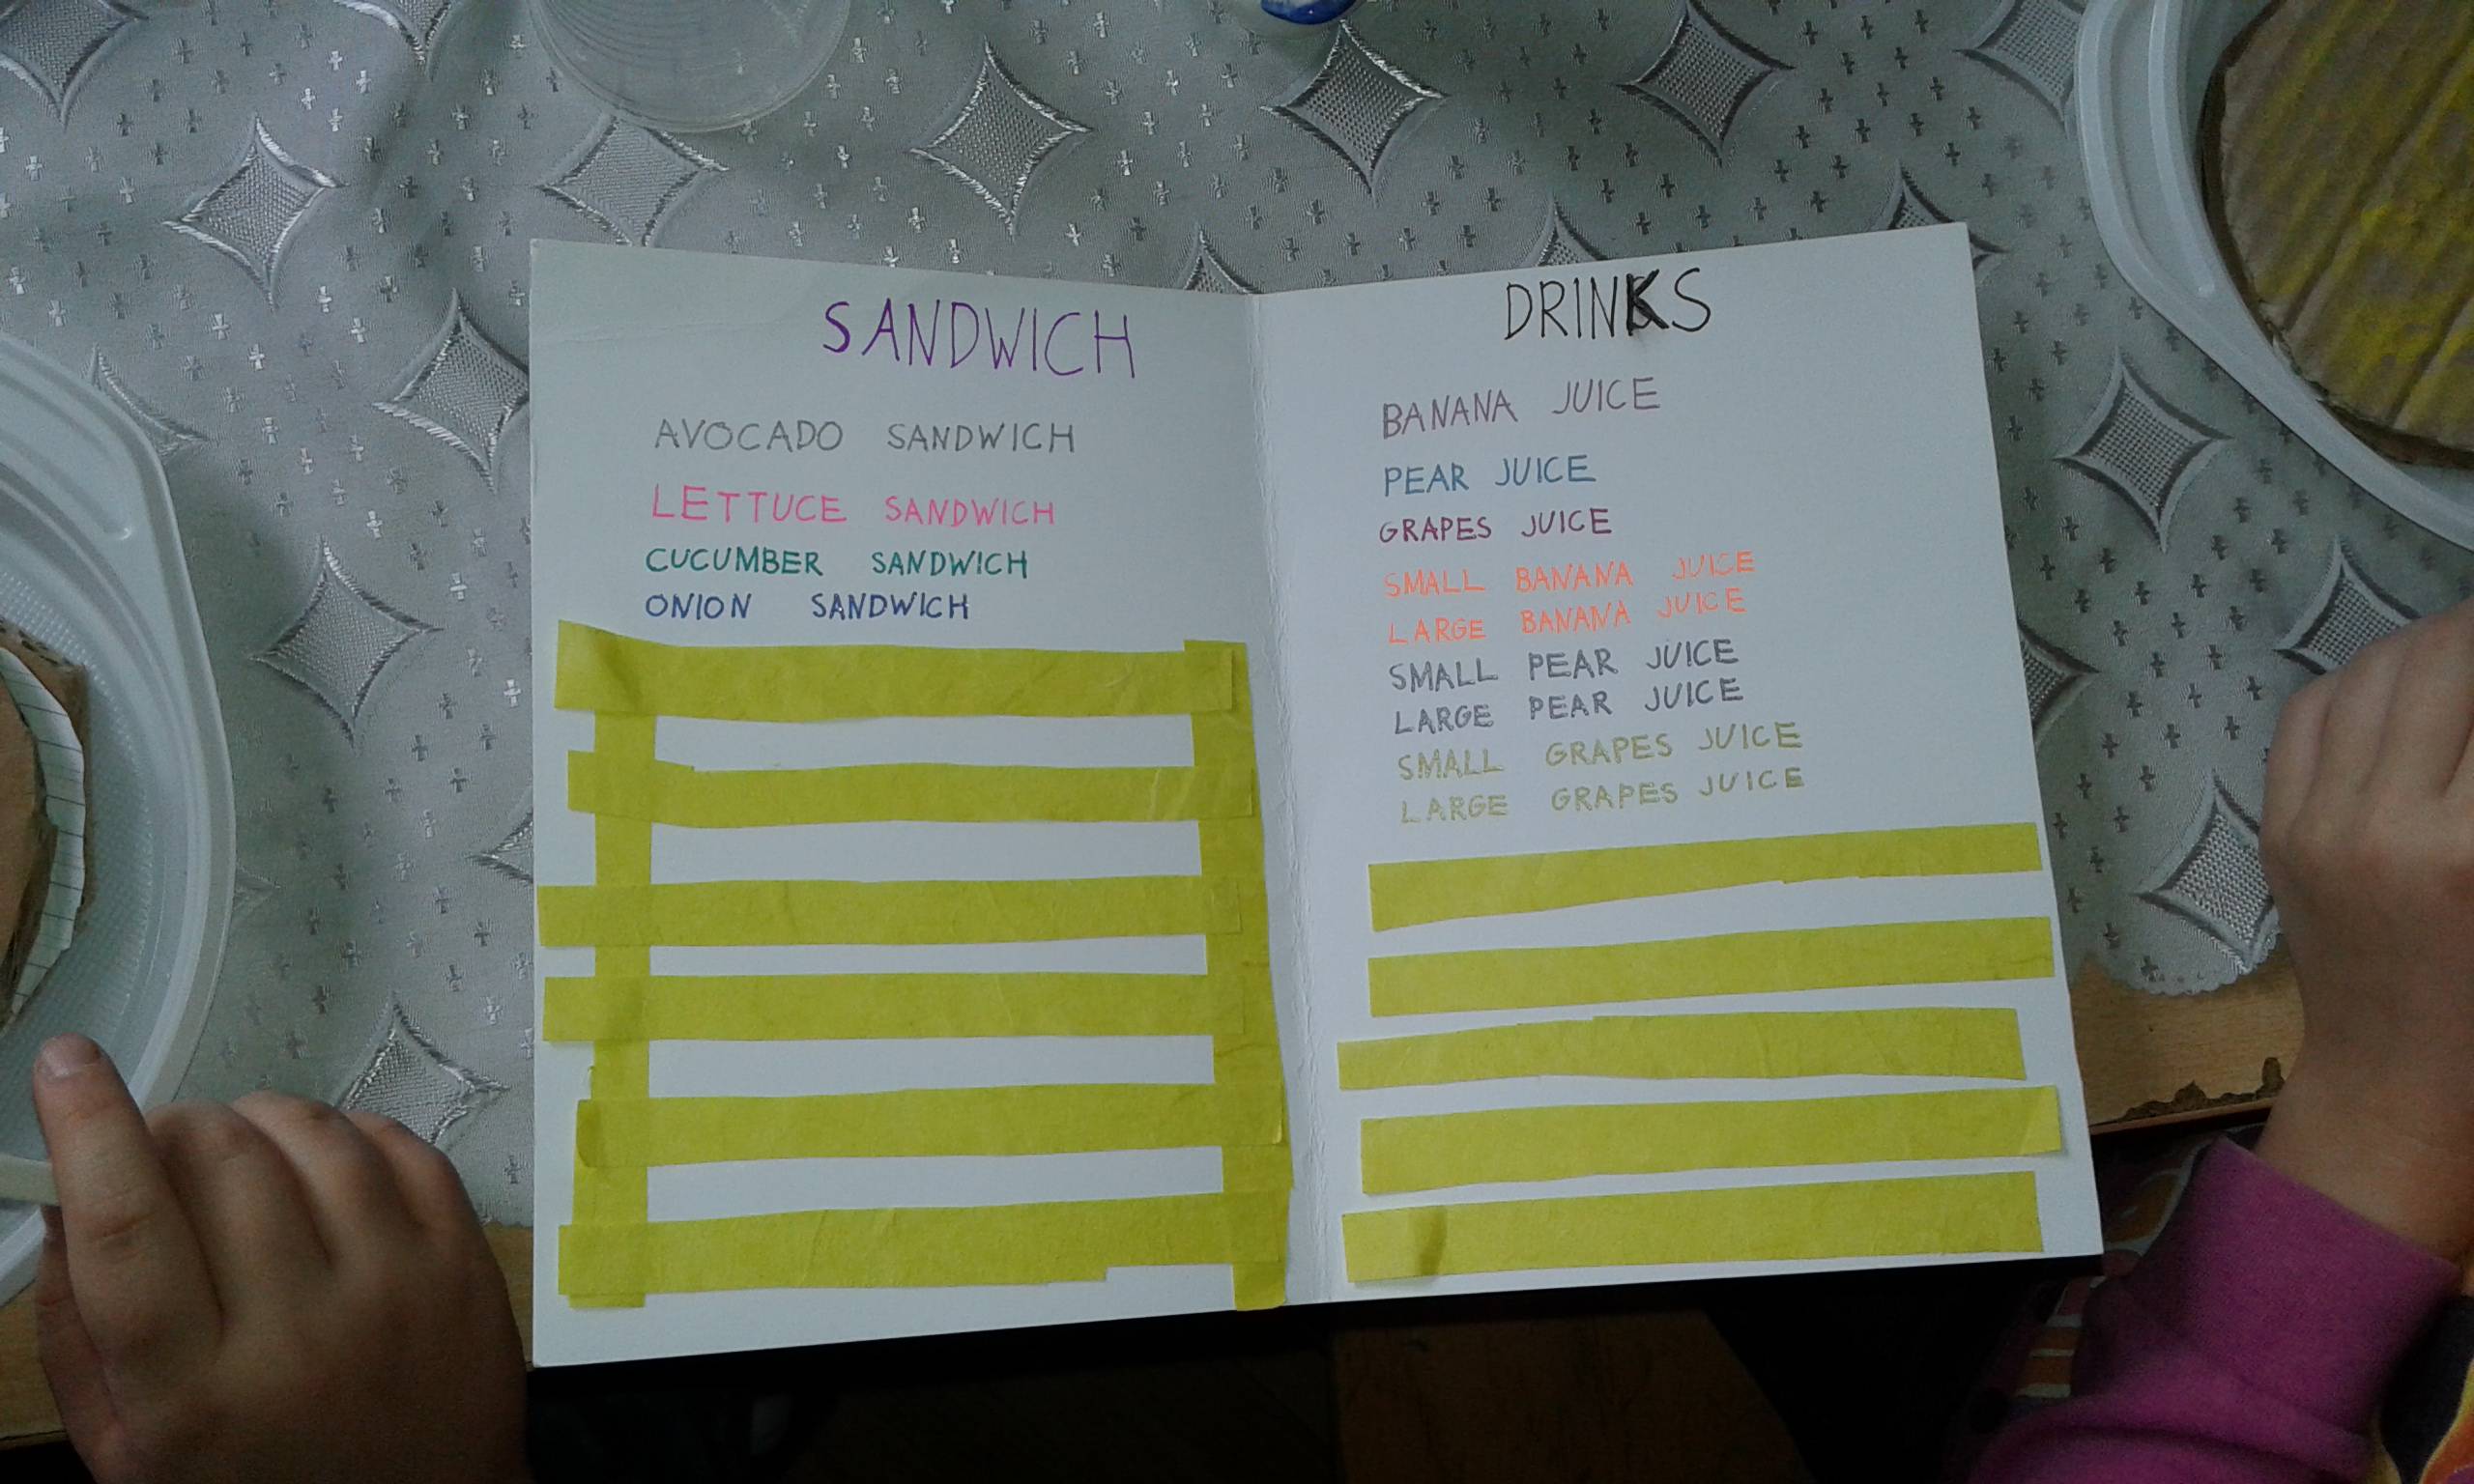 SANDWICH
AVOCADO SANDWICH
LETTUCE SANDWICH
CUCUMBER SANDWICH
ONION SANDWICH
DRINKS
BANANA JUICE
PEAR JUICE
GRAPES JUICE
SMALL BANANA JUICE
LARGE BANANA JUICE
SMALL PEAR JUICE
LARGE PEAR JUICE
SMALL GRAPES JUICE
LARGE GRAPES JUICE